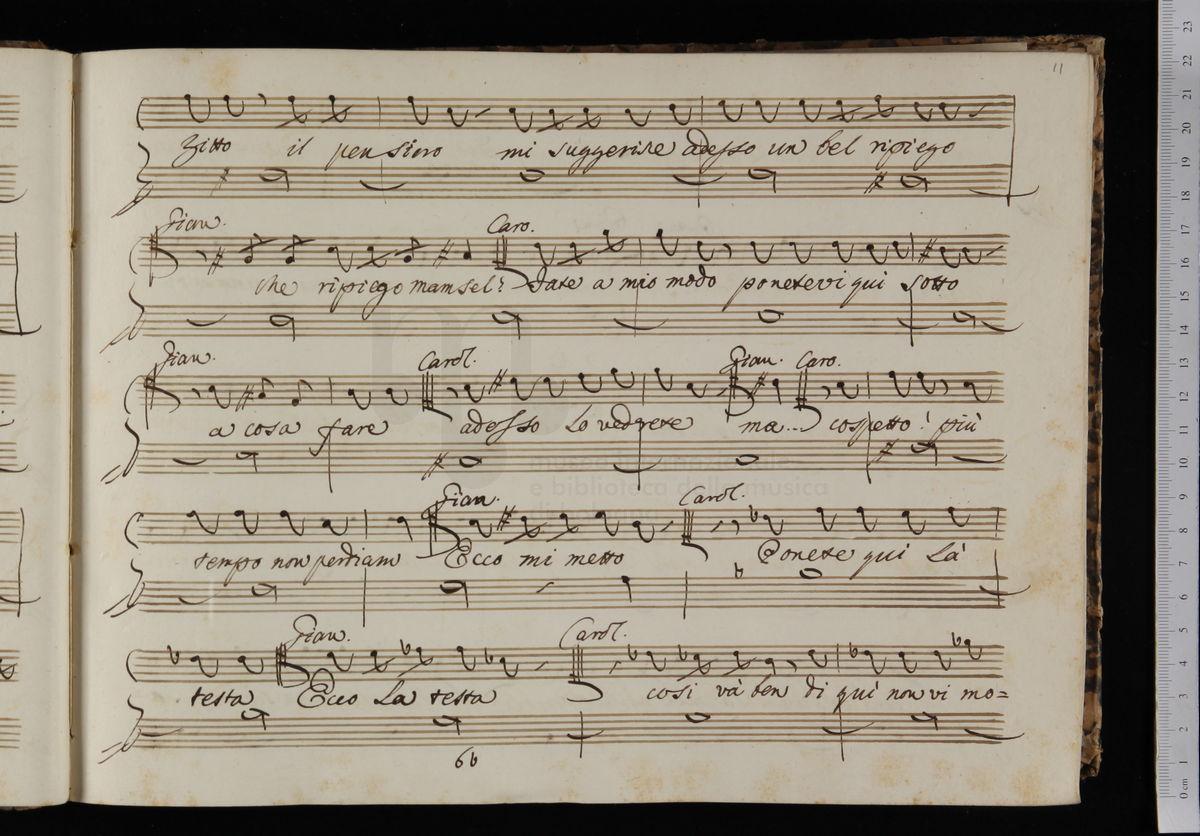 11
Zitto il pensiero mi suggerisce adesso un bel ripiego
Gian. Caro.
Che ripiego mamsel? Fate a mio modo ponetevi qui sotto
Gian. Carol. Gian. Caro.
a cosa fare adesso Lo vedrete ma... cospetto! più
museo internazionale
e biblioteca della musica
Gian. Carol.
tempo non perdiam Ecco mi metto Ponete qui Là
Gian. Carol.
testa Ecco La testa così và ben di quì non vi mo=
6b
0 cm 1 2 3 4 5 6 7 8 9 10 11 12 13 14 15 16 17 18 19 20 21 22 23